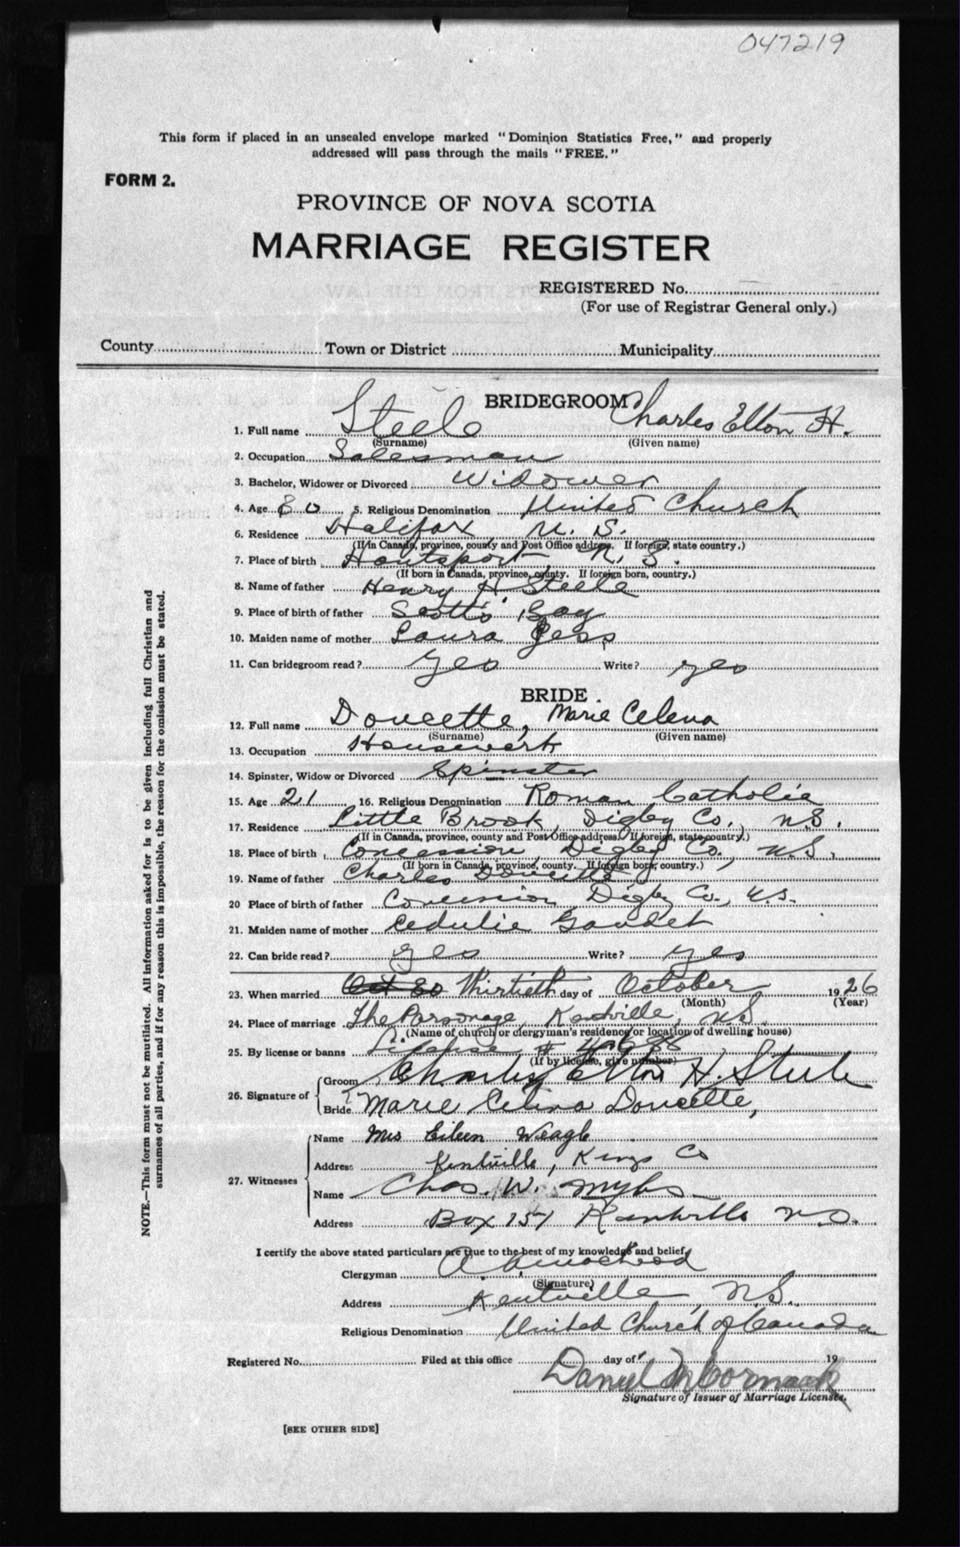 047219
This form if placed in an unsealed envelope marked "Dominion Statistics Free," and properly
addressed will pass through the mails "FREE."
FORM 2.
PROVINCE OF NOVA SCOTIA
MARRIAGE REGISTER
REGISTERED No.
(For use of Registrar General only.)
County Town or District Municipality
BRIDEGROOM
1. Full name Steele Charles Elton H.
(Surname) (Given name)
2. Occupation Salesman
3. Bachelor, Widower or Divorced Widower
4. Age 30 5. Religious Denomination United Church
6. Residence Halifax N. S.
(If in Canada, province, county and Post Office address. If foreign, state country.)
7. Place of birth Hantsport, N. S.
(If born in Canada, province, county. If foreign born, country.)
8. Name of father Henry H Steele
9. Place of birth of father Scotts Bay
10. Maiden name of mother Laura Jess
11. Can bridegroom read? yes Write? yes
BRIDE.
12. Full name Doucette, Marie Celena
(Surname) (Given name)
13. Occupation Housework
14. Spinster, Widow or Divorced Spinster
15. Age 21 16. Religious Denomination Roman Catholic
17. Residence Little Brook, Digby Co. N.S.
(If in Canada, province, county and Post Office address. If foreign, state country.)
18. Place of birth Concession, Digby Co., N.S.
(If born in Canada, province, county. If foreign born, country.)
19. Name of father Charles Doucette
20 Place of birth of father Concession, Digby Co., N.S.
21. Maiden name of mother Cedulie Gaudet
22. Can bride read? yes Write? yes
23. When married Oct 30 Thirtieth day of October 1926
(Month) (Year)
24. Place of marriage The Parsonage, Kentville, N.S.
(Name of church or clergyman's residence or location of dwelling house)
25. By license or banns License #
(If by license, give number)
26. Signature of Groom Charles Elton H. Steele
Bride Marie Celina Doucette,
27. Witnesses Name Mrs Eileen Weagle
Address Kentville, Kings Co
Name Chas. W. Myles
Address Box 157 Kentville N.S.
I certify the above stated particulars are true to the best of my knowledge and belief,
Clergyman
(Signature)
Address Kentville N.S.
Religious Denomination United Church of Canada
Registered No. Filed at this office day of 19
Daniel McCormack
Signature of Issuer of Marriage Licenses.
[SEE OTHER SIDE]
NOTE.—This form must not be mutilated. All information asked for is to be given including full Christian and
surnames of all parties, and if for any reason this is impossible, the reason for the omission must be stated.